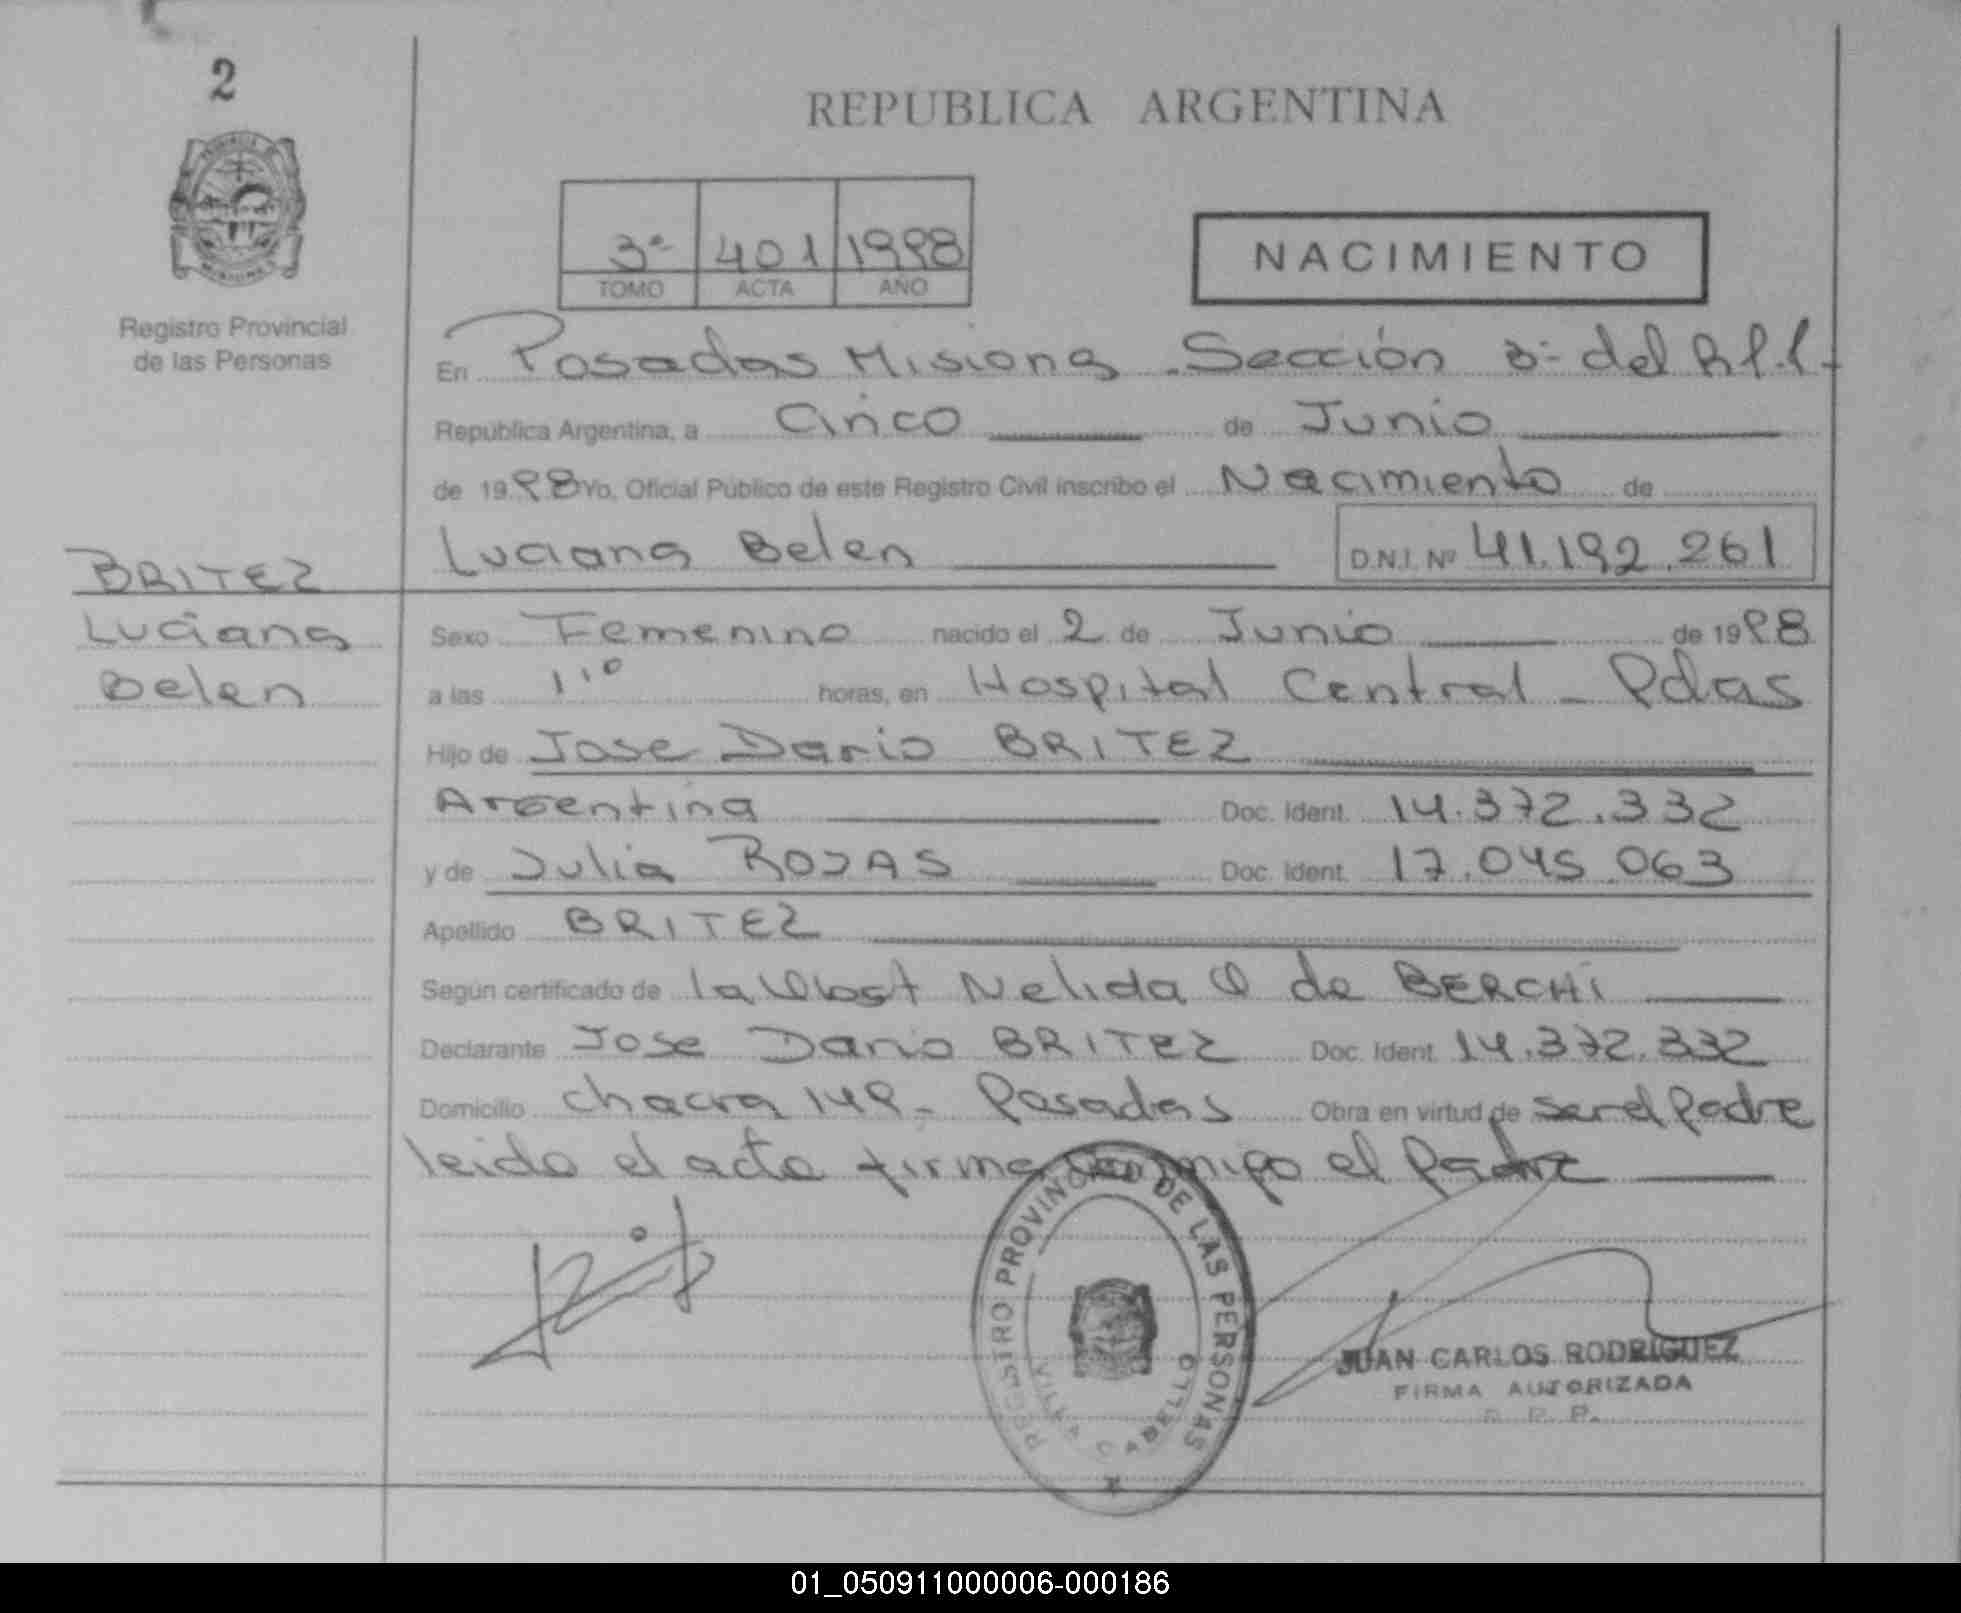 2
REPUBLICA ARGENTINA
3ª 401 1998
TOMO ACTA AÑO
NACIMIENTO
Registro Provincial
de las Personas
En Posadas Misiones Sección 3ª del R.P.P.
República Argentina, a Cinco de Junio
de 1998 Yo, Oficial Público de este Registro Civil inscribo el Nacimiento de
Luciana Belen D.N.I. Nº 41.192.261
BRITEZ
Luciana
Belen
Sexo Femenino nacido el 2 de Junio de 1998
a las 11º horas, en Hospital Central - Pdas
Hijo de Jose Dario BRITEZ
Argentina Doc. Ident. 14.372.332
y de Julia ROJAS Doc. Ident. 17.045.063
Apellido BRITEZ
Según certificado de la Obst Nelida O de BERCHI
Declarante Jose Dario BRITEZ Doc. Ident. 14.372.332
Domicilio chacra 149 - Posadas Obra en virtud de ser el Padre
leido el acta firma conmigo el Padre
REGISTRO PROVINCIAL DE LAS PERSONAS
VILLA CABELLO
JUAN CARLOS RODRIGUEZ
FIRMA AUTORIZADA
R. P. P.
01_050911000006-000186